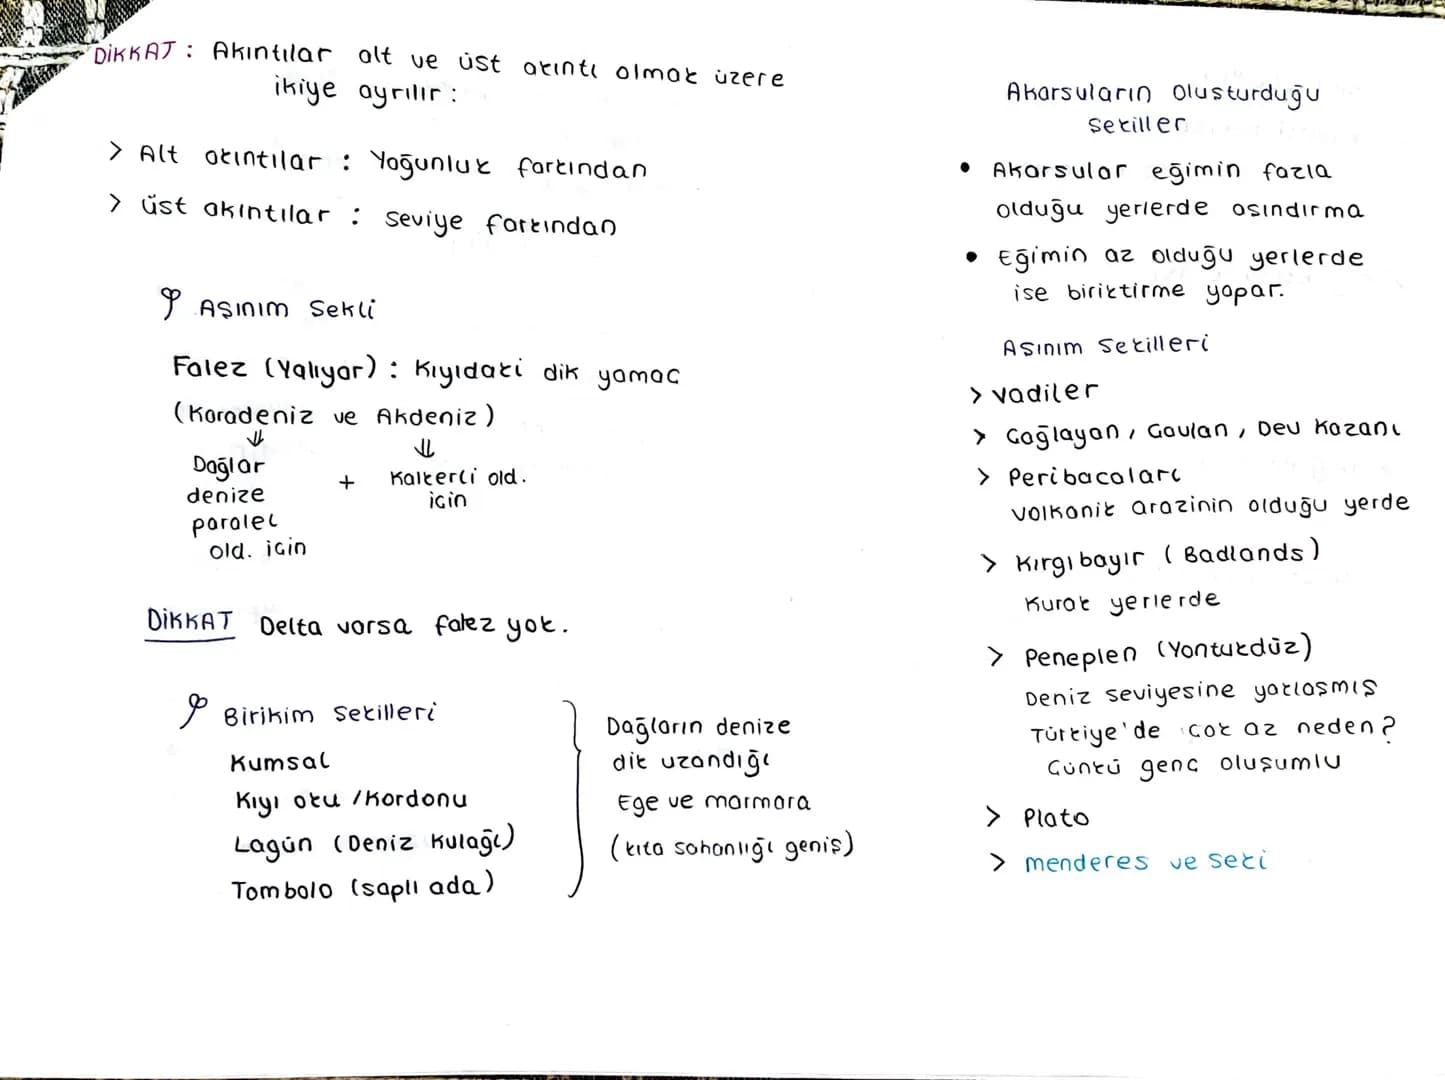 DİKKAT : Akıntılar alt ve üst akıntı olmak üzere
ikiye ayrılır :
> Alt akıntılar : Yoğunluk farkından
> üst akıntılar : seviye farkından
Aşınım Sekli
Falez (Yalıyar) : Kıyıdaki dik yamac
(Karadeniz ve Akdeniz)
⇓ ⇓
Dağlar
denize
paralel
old. icin
+
Kalkerli old.
icin
DİKKAT Delta varsa falez yok.
Birikim Sekilleri
Kumsal
Kıyı oku /Kordonu
Lagün (Deniz Kulağı)
Tombolo (saplı ada)
Dağların denize
dik uzandığı
Ege ve marmara
(kıta sahanlığı geniş)
Akarsuların Olusturduğu
Sekiller
• Akarsular eğimin fazla
olduğu yerlerde asındırma
• Eğimin az olduğu yerlerde
ise biriktirme yapar.
Asınım Sekilleri
> vadiler
> Cağlayan, Cavlan, Dev Kazanı
> Peribacaları
Volkanik arazinin olduğu yerde
> Kırgıbayır (Badlands)
Kurak yerlerde
> Peneplen (Yontukdüz)
Deniz seviyesine yaklaşmış
Türkiye'de cok az neden?
Cünkü genc oluşumlu
> Plato
> menderes ve seki